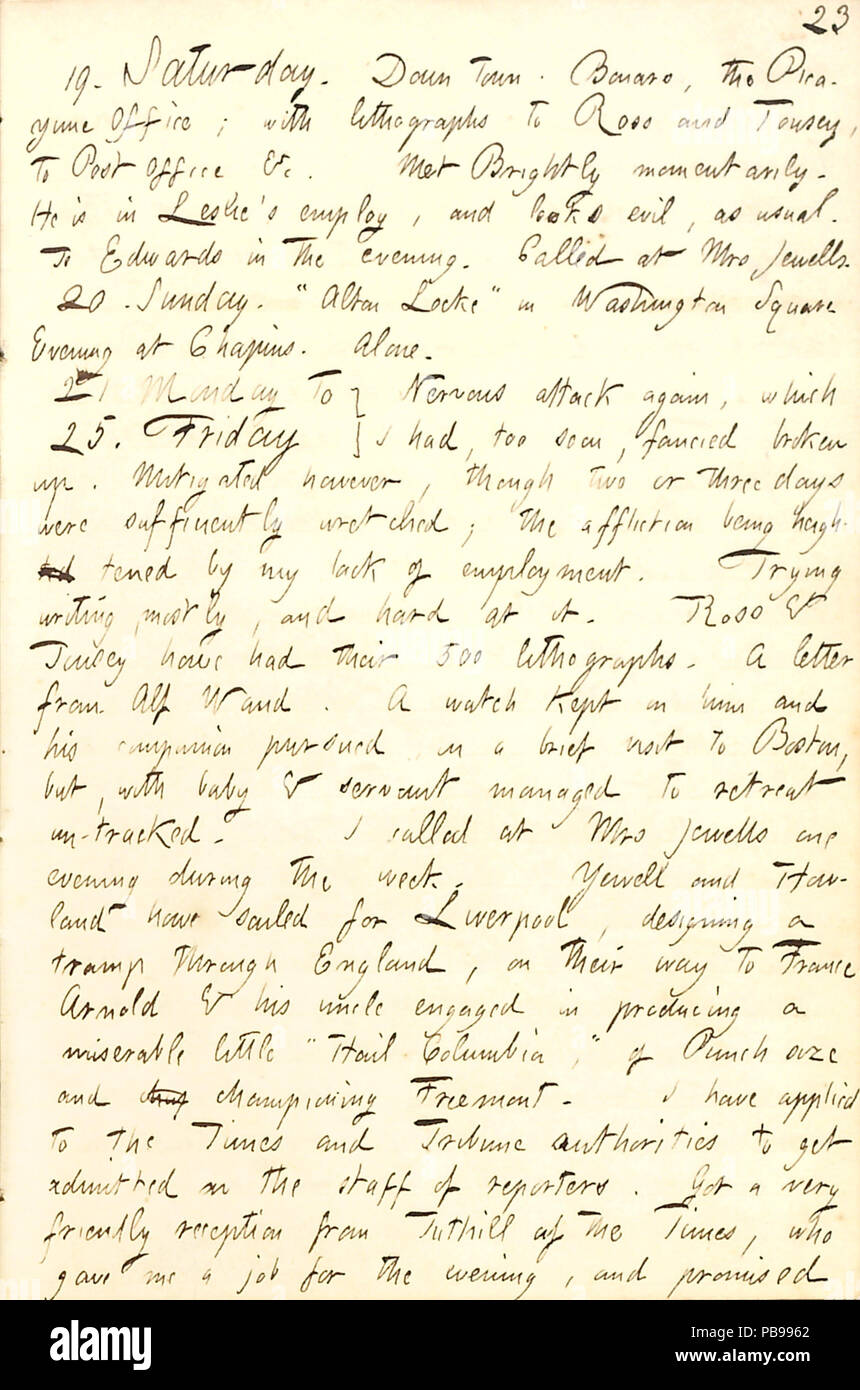 23
19. Saturday. Down Town. Bonars, the Pica-
yune Office; with lithographs to Ross and Tousey,
to Post Office &c. Met Brightly momentarily.
He is in Leslie's employ, and looks evil, as usual.
To Edwards in the evening. Called at Mrs Jewells.
20. Sunday. "Alton Locke" in Washington Square
Evening at Chapins. Alone.
21 Monday to } Nervous attack again, which
25. Friday } I had, too soon, fancied broken
up. Mitigated however, though two or three days
were sufficiently wretched; the affliction being heigh-
tened by my lack of employment. Trying
writing mostly, and hard at it. Ross &
Tousey have had their 500 lithographs. A letter
from Alf Waud. A watch kept on him and
his companion pursued on a brief visit to Boston,
but, with baby & servant managed to retreat
un-tracked. I called at Mrs Jewells one
evening during the week. Yewell and How-
land have sailed for Liverpool, designing a
tramp through England, on their way to France
Arnold & his uncle engaged in producing a
miserable little "Hail Columbia," of Punch size
and championing Freemont. I have applied
to the Times and Tribune authorities to get
admitted on the staff of reporters. Got a very
friendly reception from Tuthill of the Times, who
gave me a job for the evening, and promised
alamy
Image ID: PB9962
www.alamy.com